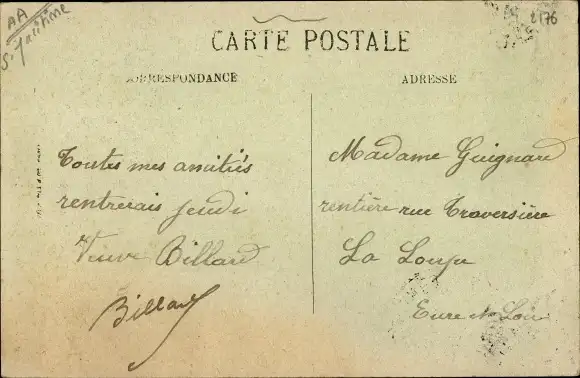 AA
2176
CARTE POSTALE
CORRESPONDANCE
ADRESSE
Toutes mes amitiés
rentrerais jeudi
Veuve Billard
Billard
Madame Guignard
rentière rue Traversière
La Loupe
Eure et Loir